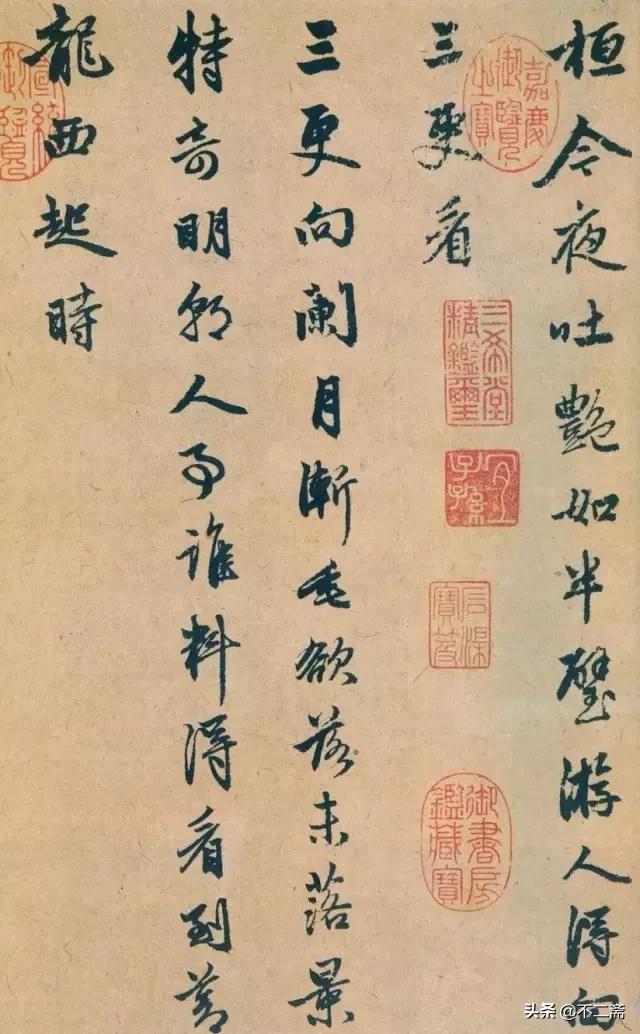 桓今夜吐艷如半璧游人得向
三更看
三更向闌月漸垂欲落未落景
特奇明朝人事誰料得看到蒼
龍西起時
嘉慶御覽之寶
三希堂精鑑璽
宜子孫
石渠寶笈
御書房鑑藏寶
宣統御覽
头条 @不二斋